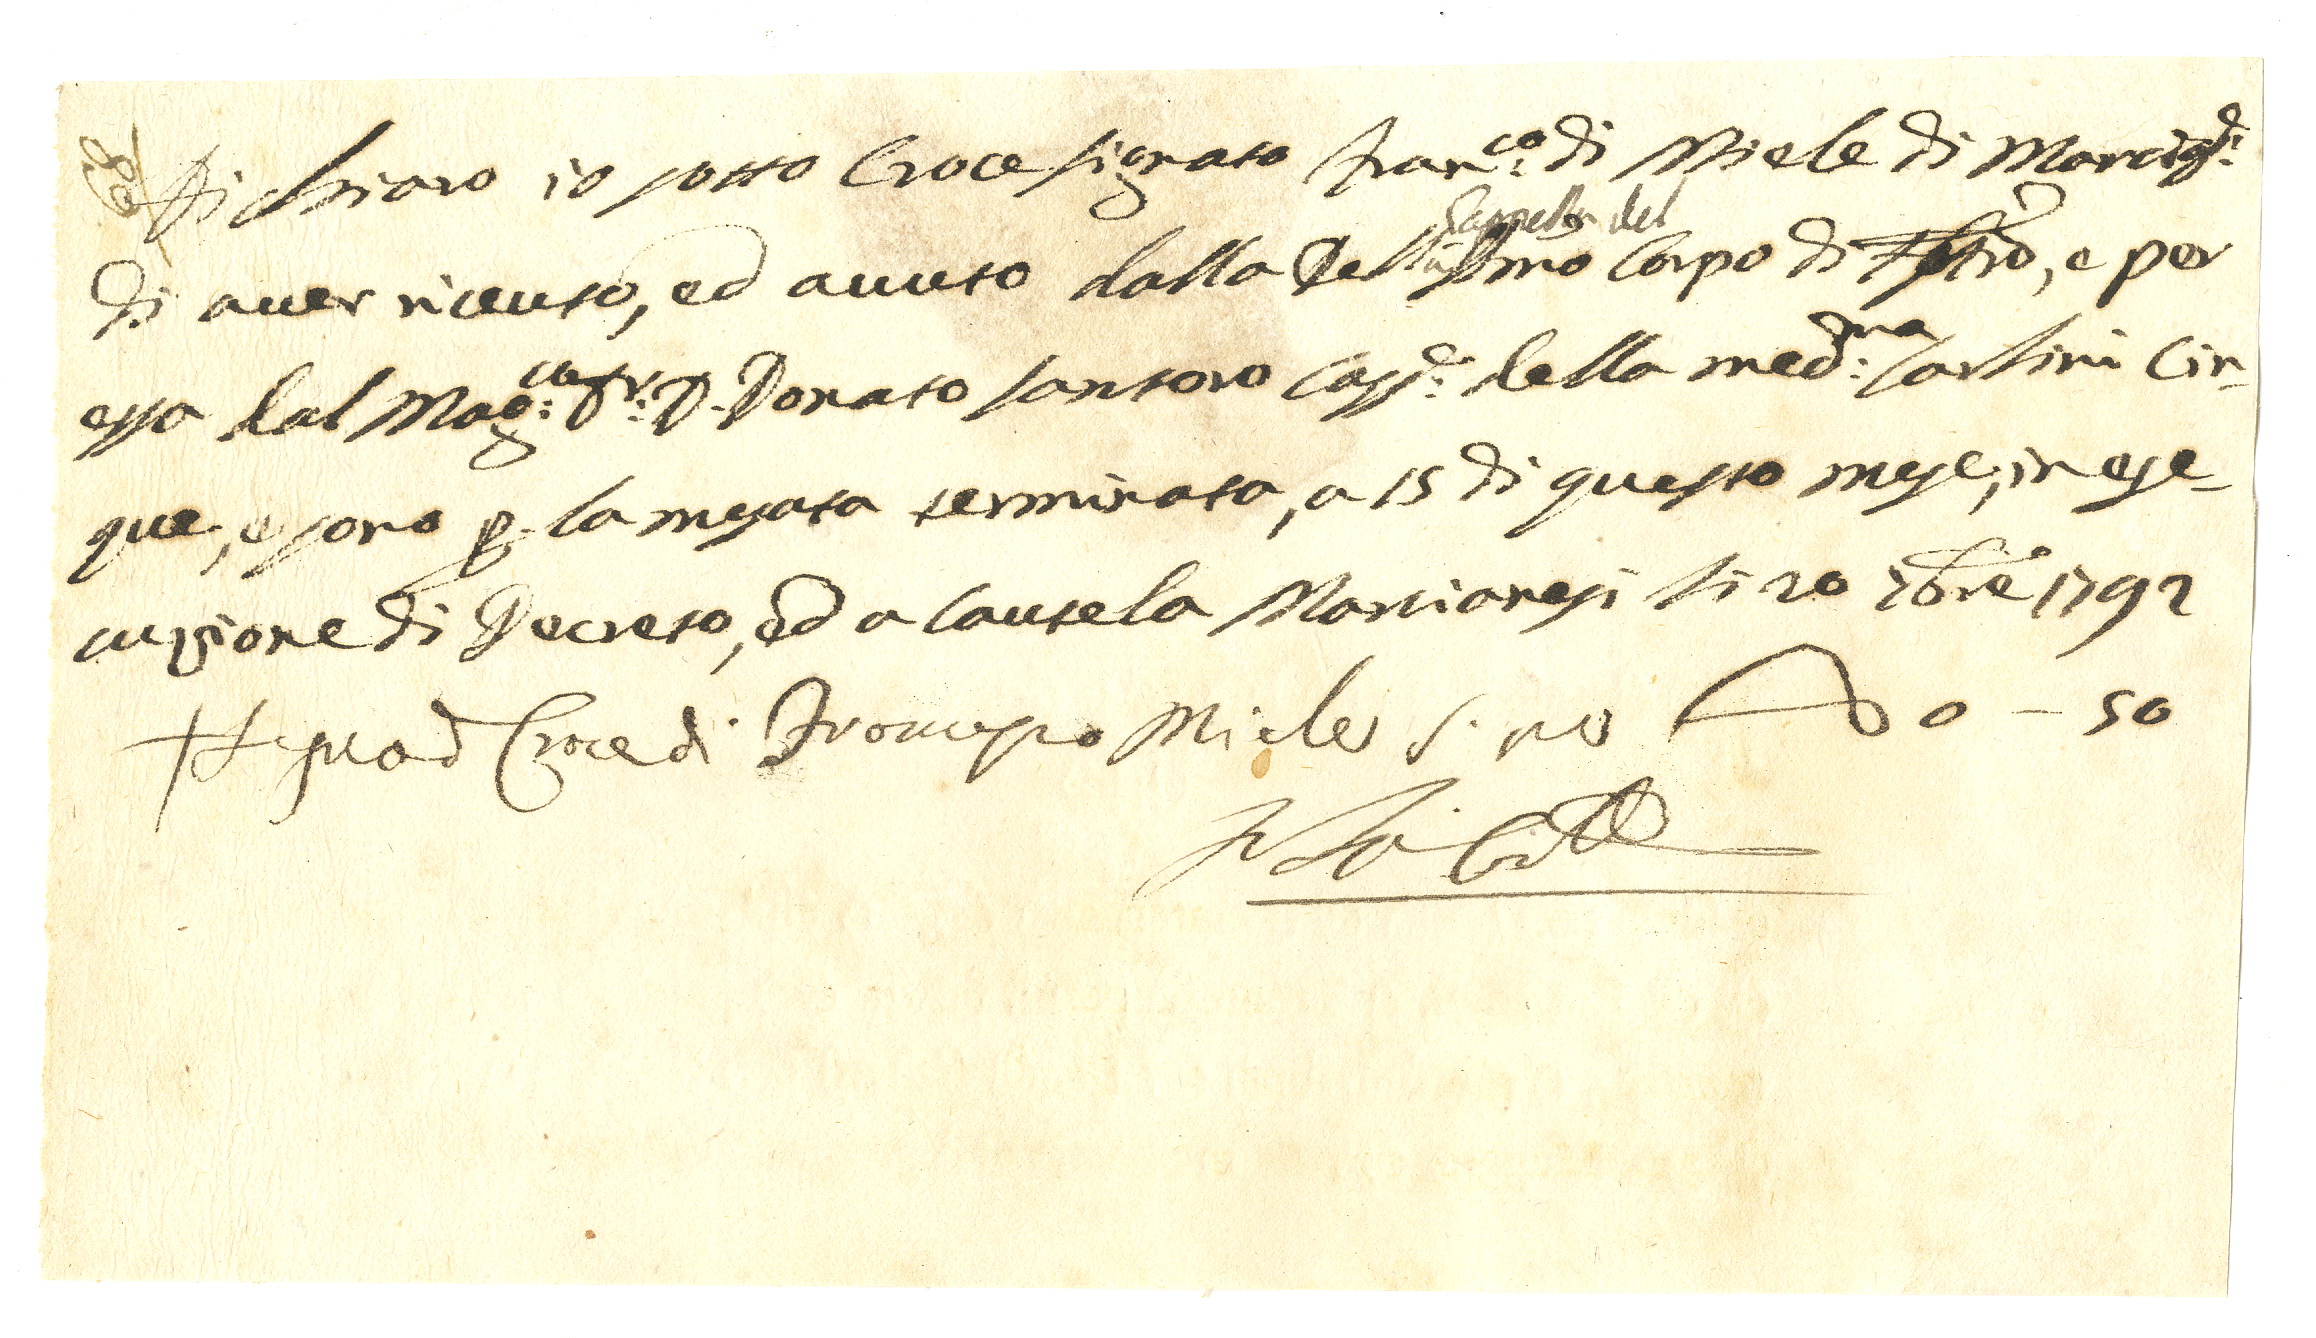 Dichiaro io sotto Croce signato Fran.co di Miele di
Cappella del
di aver riceuto, ed avuto dalla SS.mo Corpo di e per
essa dal Mag.co Dr. D. Donato Santoro Cass.e della med.ma Carlini cin-
que, e sono p. la mesata terminata, a 15 di questo mese, in ese-
cuzione di Decreto, ed a cautela Marcianesi li 20 7bre 1792
+ Segno d Croce di Francesco Miele 0-50